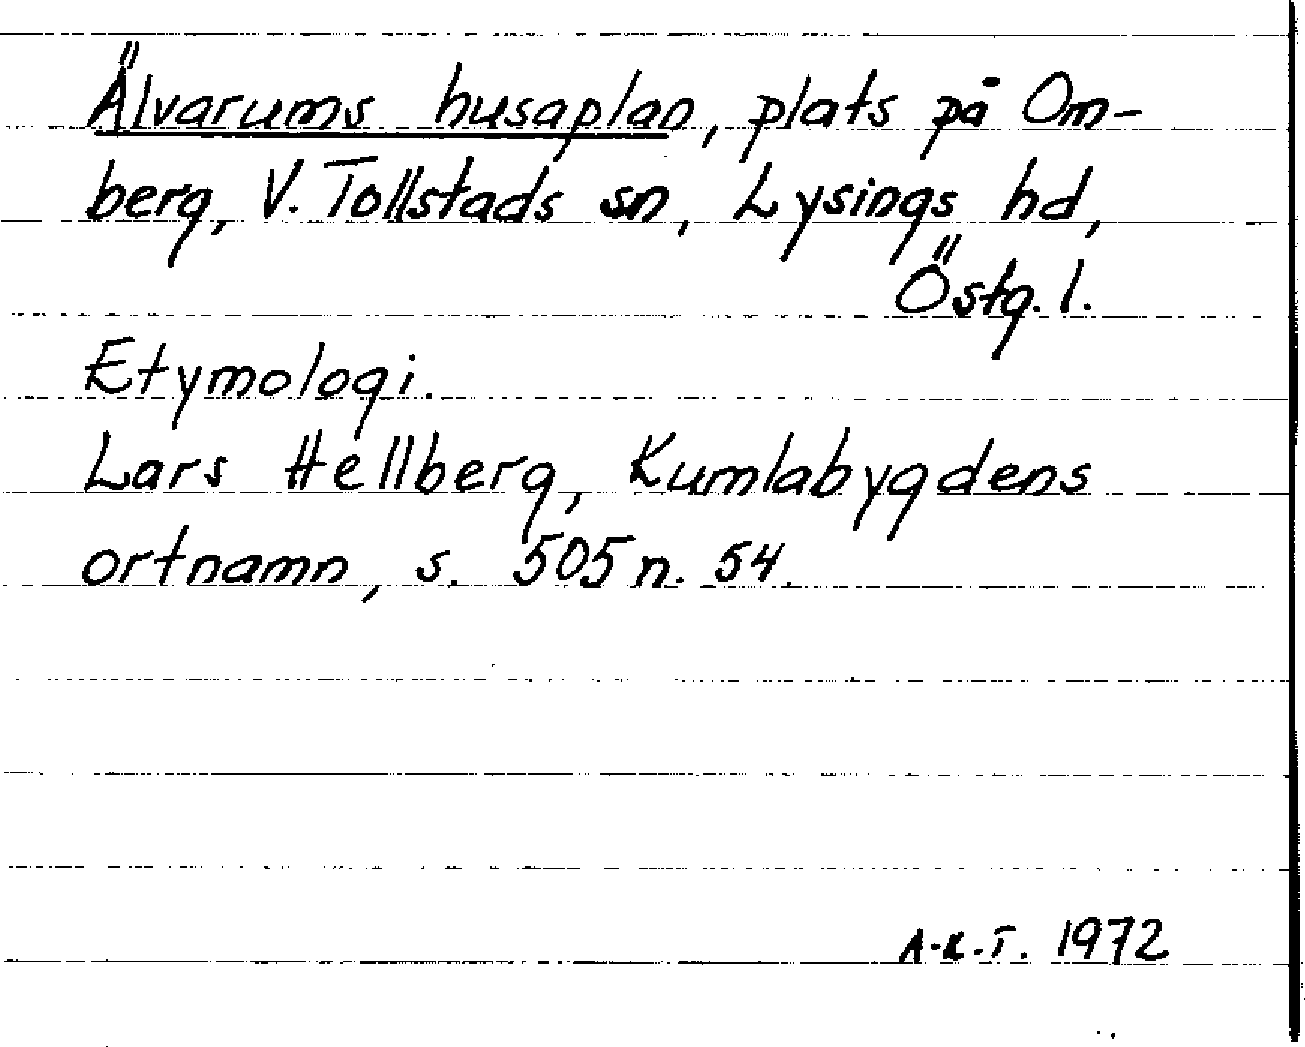 Älvarums husaplan, plats på Om-
berg, V. Tollstads sn, Lysings hd,
Östg. l.
Etymologi.
Lars Hellberg, Kumlabygdens
ortnamn, s. 505 n. 54.
A-K.T. 1972